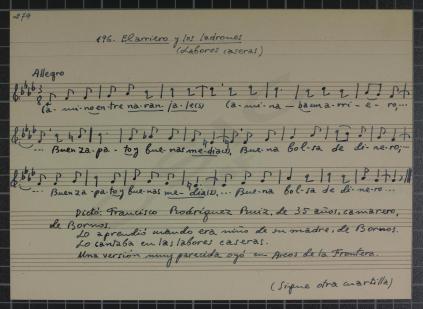 279
196. El arriero y los ladrones
(Labores caseras)
Allegro
Ca-mi-no entre naran-ja-le(s) Ca-mi-na-ba un a-rri-e-ro,...
... Buen za-pa-to y bue-nas me-dia(s), Bue-na bol-sa de di-ne-ro;...
... Buen za-pa-to y bue-nas me-dia(s),... Bue-na bol-sa de di-ne-ro...
Dictó: Francisco Rodríguez Ruiz, de 35 años, camarero,
de Bornos.
Lo aprendió cuando era niño de su madre, de Bornos.
Lo cantaba en las labores caseras.
Una versión muy parecida oyó en Arcos de la Frontera.
(Sigue otra cuartilla)